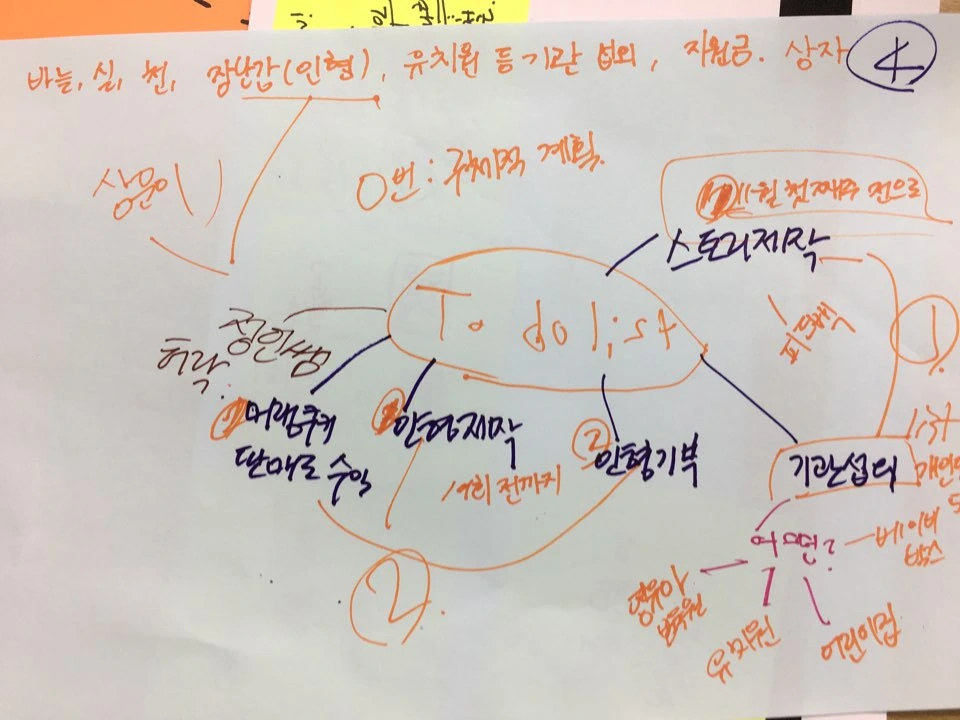 바늘, 실, 천, 장난감(인형), 유치원 등 기관 섭외, 지원금. 상자
4
상윤이
0번: 구체적 계획.
11월 첫째주 전으로
스토리제작
피드백
To do list
정인쌤
허락.
머랭쿠키
판매로 수익
인형제작
19회 전까지
2
인형기부
1
기관섭외
1차
어떤?
베이비
박스
영유아
보육원
유치원
어린이집
2.